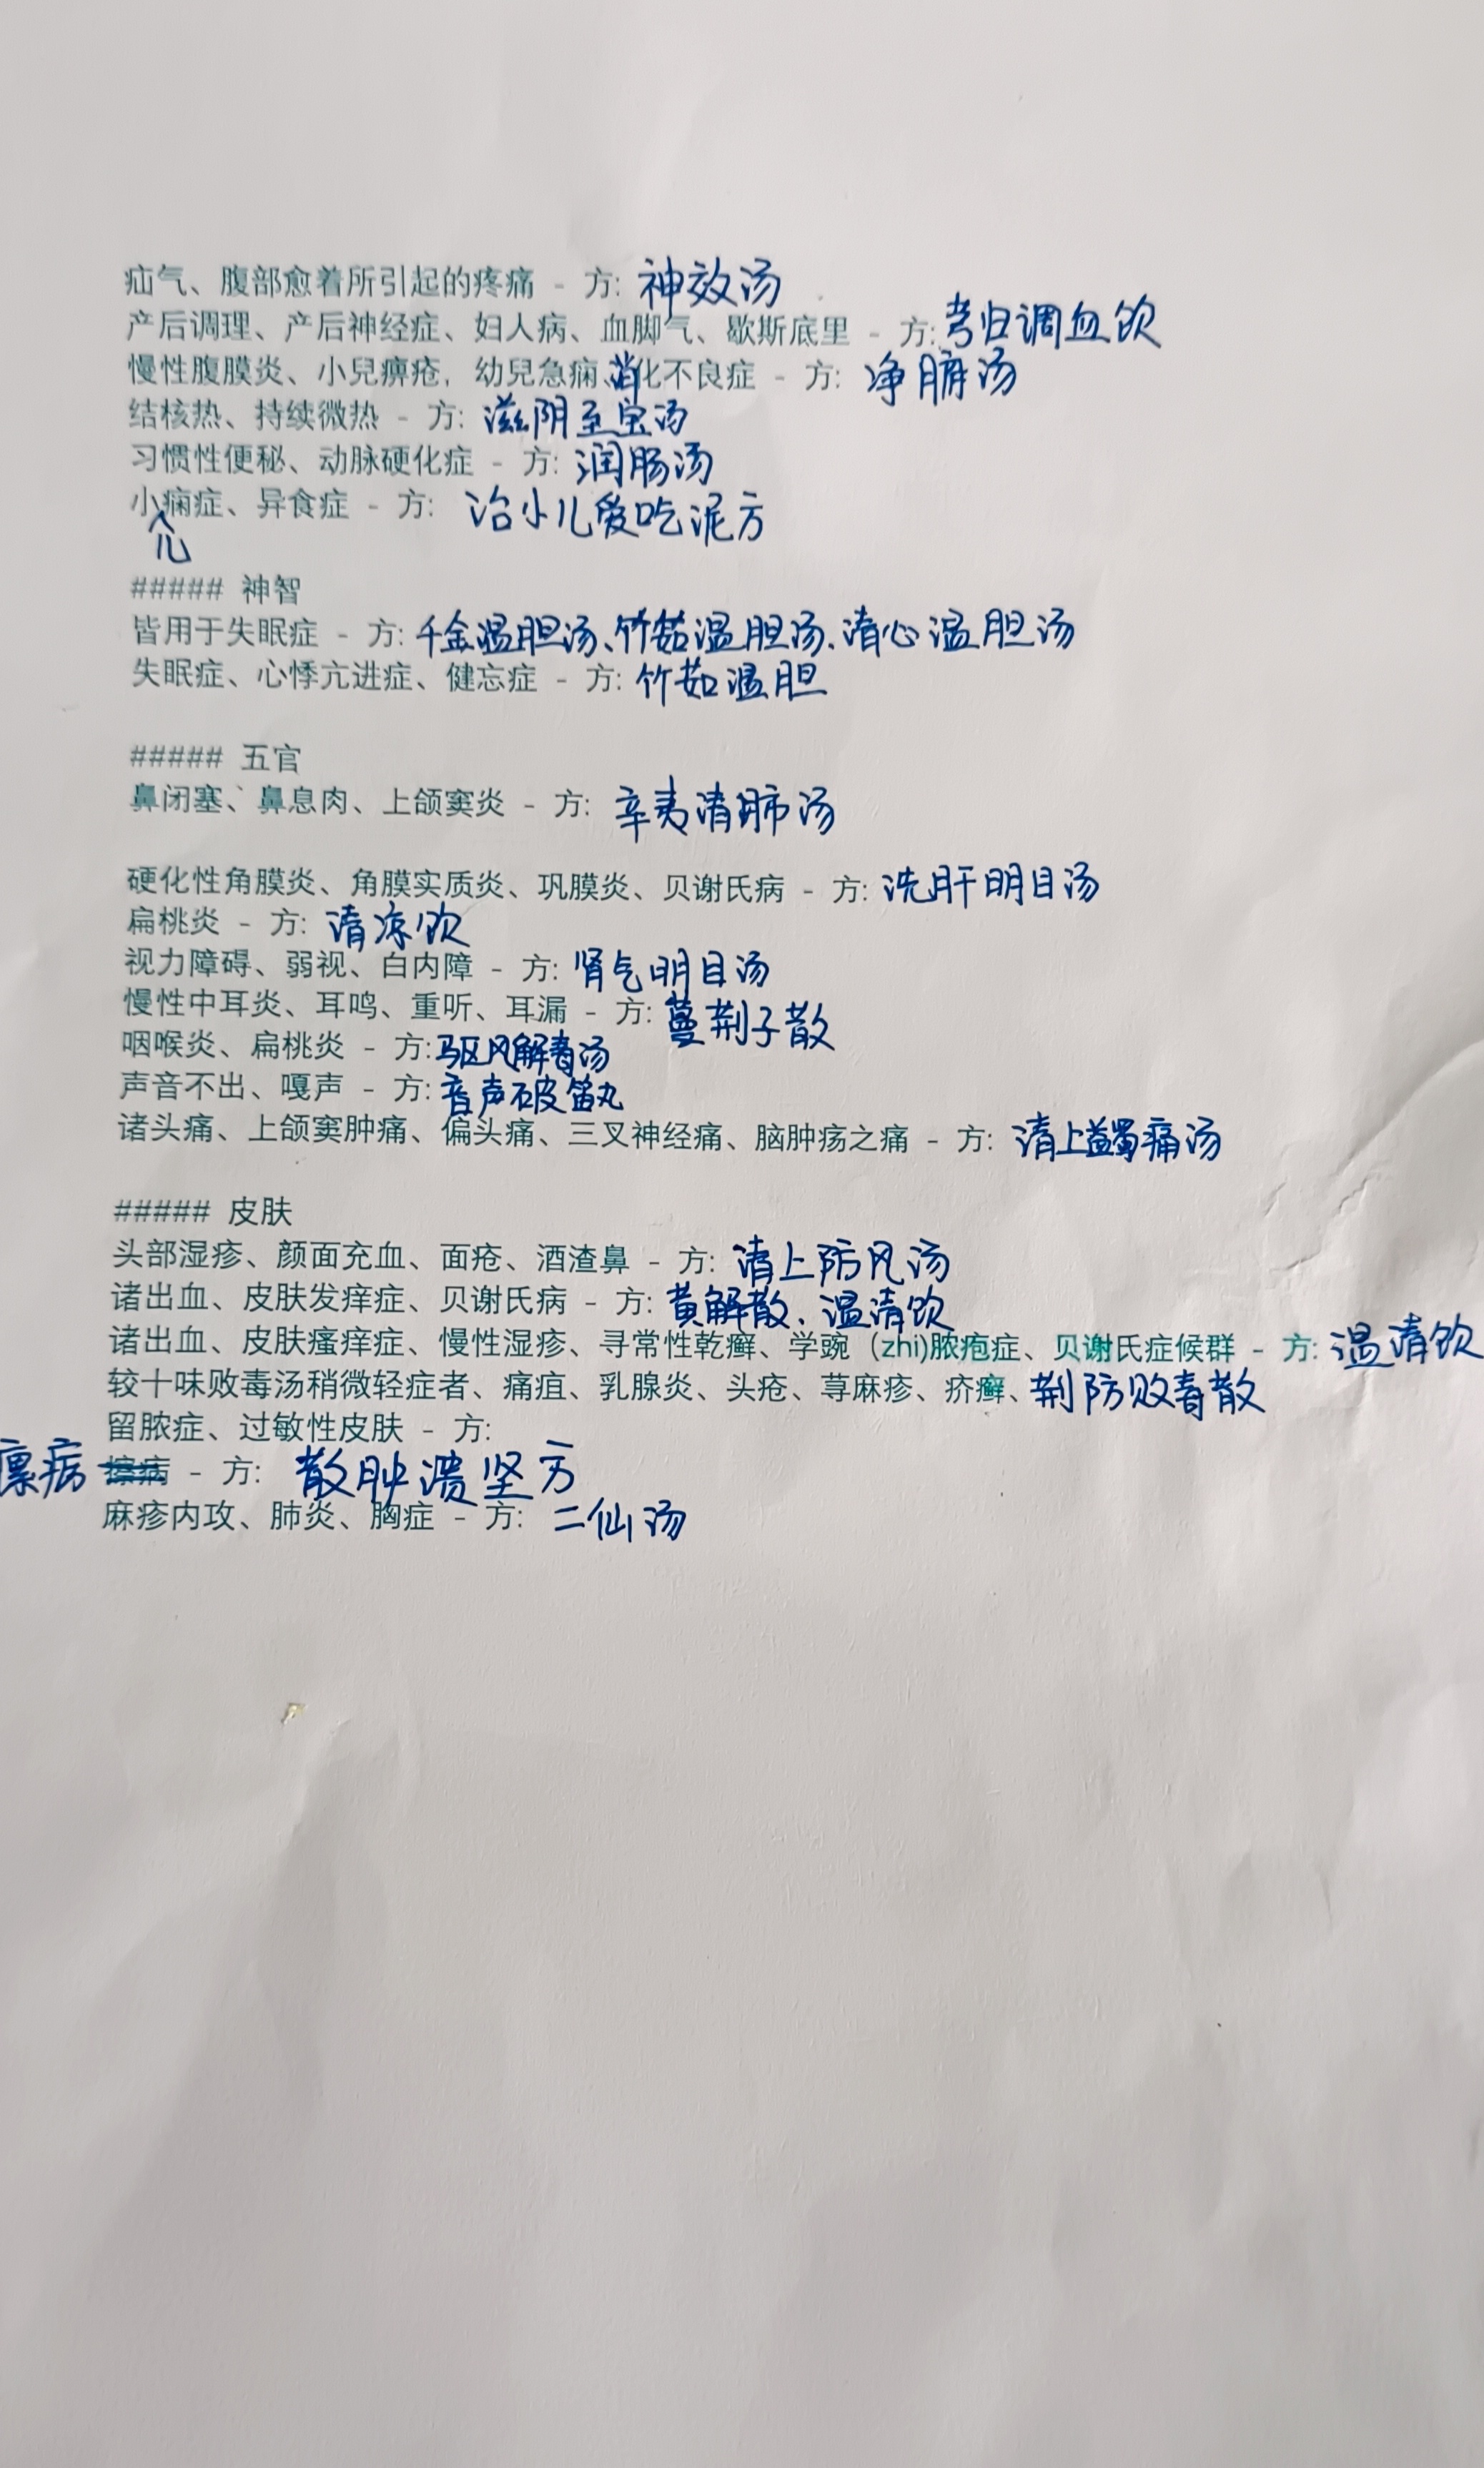 疝气、腹部愈着所引起的疼痛 - 方: 神效汤
产后调理、产后神经症、妇人病、血脚气、歇斯底里 - 方: 芎归调血饮
慢性腹膜炎、小兒痹疮, 幼兒急痫、消化不良症 - 方: 净腑汤
结核热、持续微热 - 方: 滋阴至宝汤
习惯性便秘、动脉硬化症 - 方: 润肠汤
小儿痫症、异食症 - 方: 治小儿爱吃泥方
##### 神智
皆用于失眠症 - 方: 千金温胆汤、竹茹温胆汤、清心温胆汤
失眠症、心悸亢进症、健忘症 - 方: 竹茹温胆
##### 五官
鼻闭塞、鼻息肉、上颌窦炎 - 方: 辛夷清肺汤
硬化性角膜炎、角膜实质炎、巩膜炎、贝谢氏病 - 方: 洗肝明目汤
扁桃炎 - 方: 清凉饮
视力障碍、弱视、白内障 - 方: 肾气明目汤
慢性中耳炎、耳鸣、重听、耳漏 - 方: 蔓荆子散
咽喉炎、扁桃炎 - 方: 驱风解毒汤
声音不出、嘎声 - 方: 音声破笛丸
诸头痛、上颌窦肿痛、偏头痛、三叉神经痛、脑肿疡之痛 - 方: 清上蠲痛汤
##### 皮肤
头部湿疹、颜面充血、面疮、酒渣鼻 - 方: 清上防风汤
诸出血、皮肤发痒症、贝谢氏病 - 方: 黄解散、温清饮
诸出血、皮肤瘙痒症、慢性湿疹、寻常性乾癣、学豌 (zhi)脓疱症、贝谢氏症候群 - 方: 温清饮
较十味败毒汤稍微轻症者、痛疽、乳腺炎、头疮、荨麻疹、疥癣、荆防败毒散
留脓症、过敏性皮肤 - 方:
瘭病 - 方: 散肿溃坚方
麻疹内攻、肺炎、胸症 - 方: 二仙汤